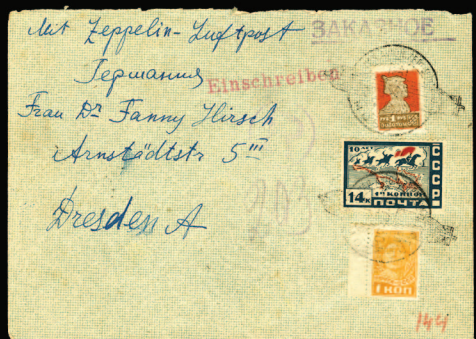 Mit Zeppelin-Luftpost
ЗАКАЗНОЕ
Германия
Einschreiben
Frau Dr Fanny Hirsch
Arnstädtstr 5 III
Dresden A
10
СССР
1я КОННАЯ
14к ПОЧТА
1 КОП
144